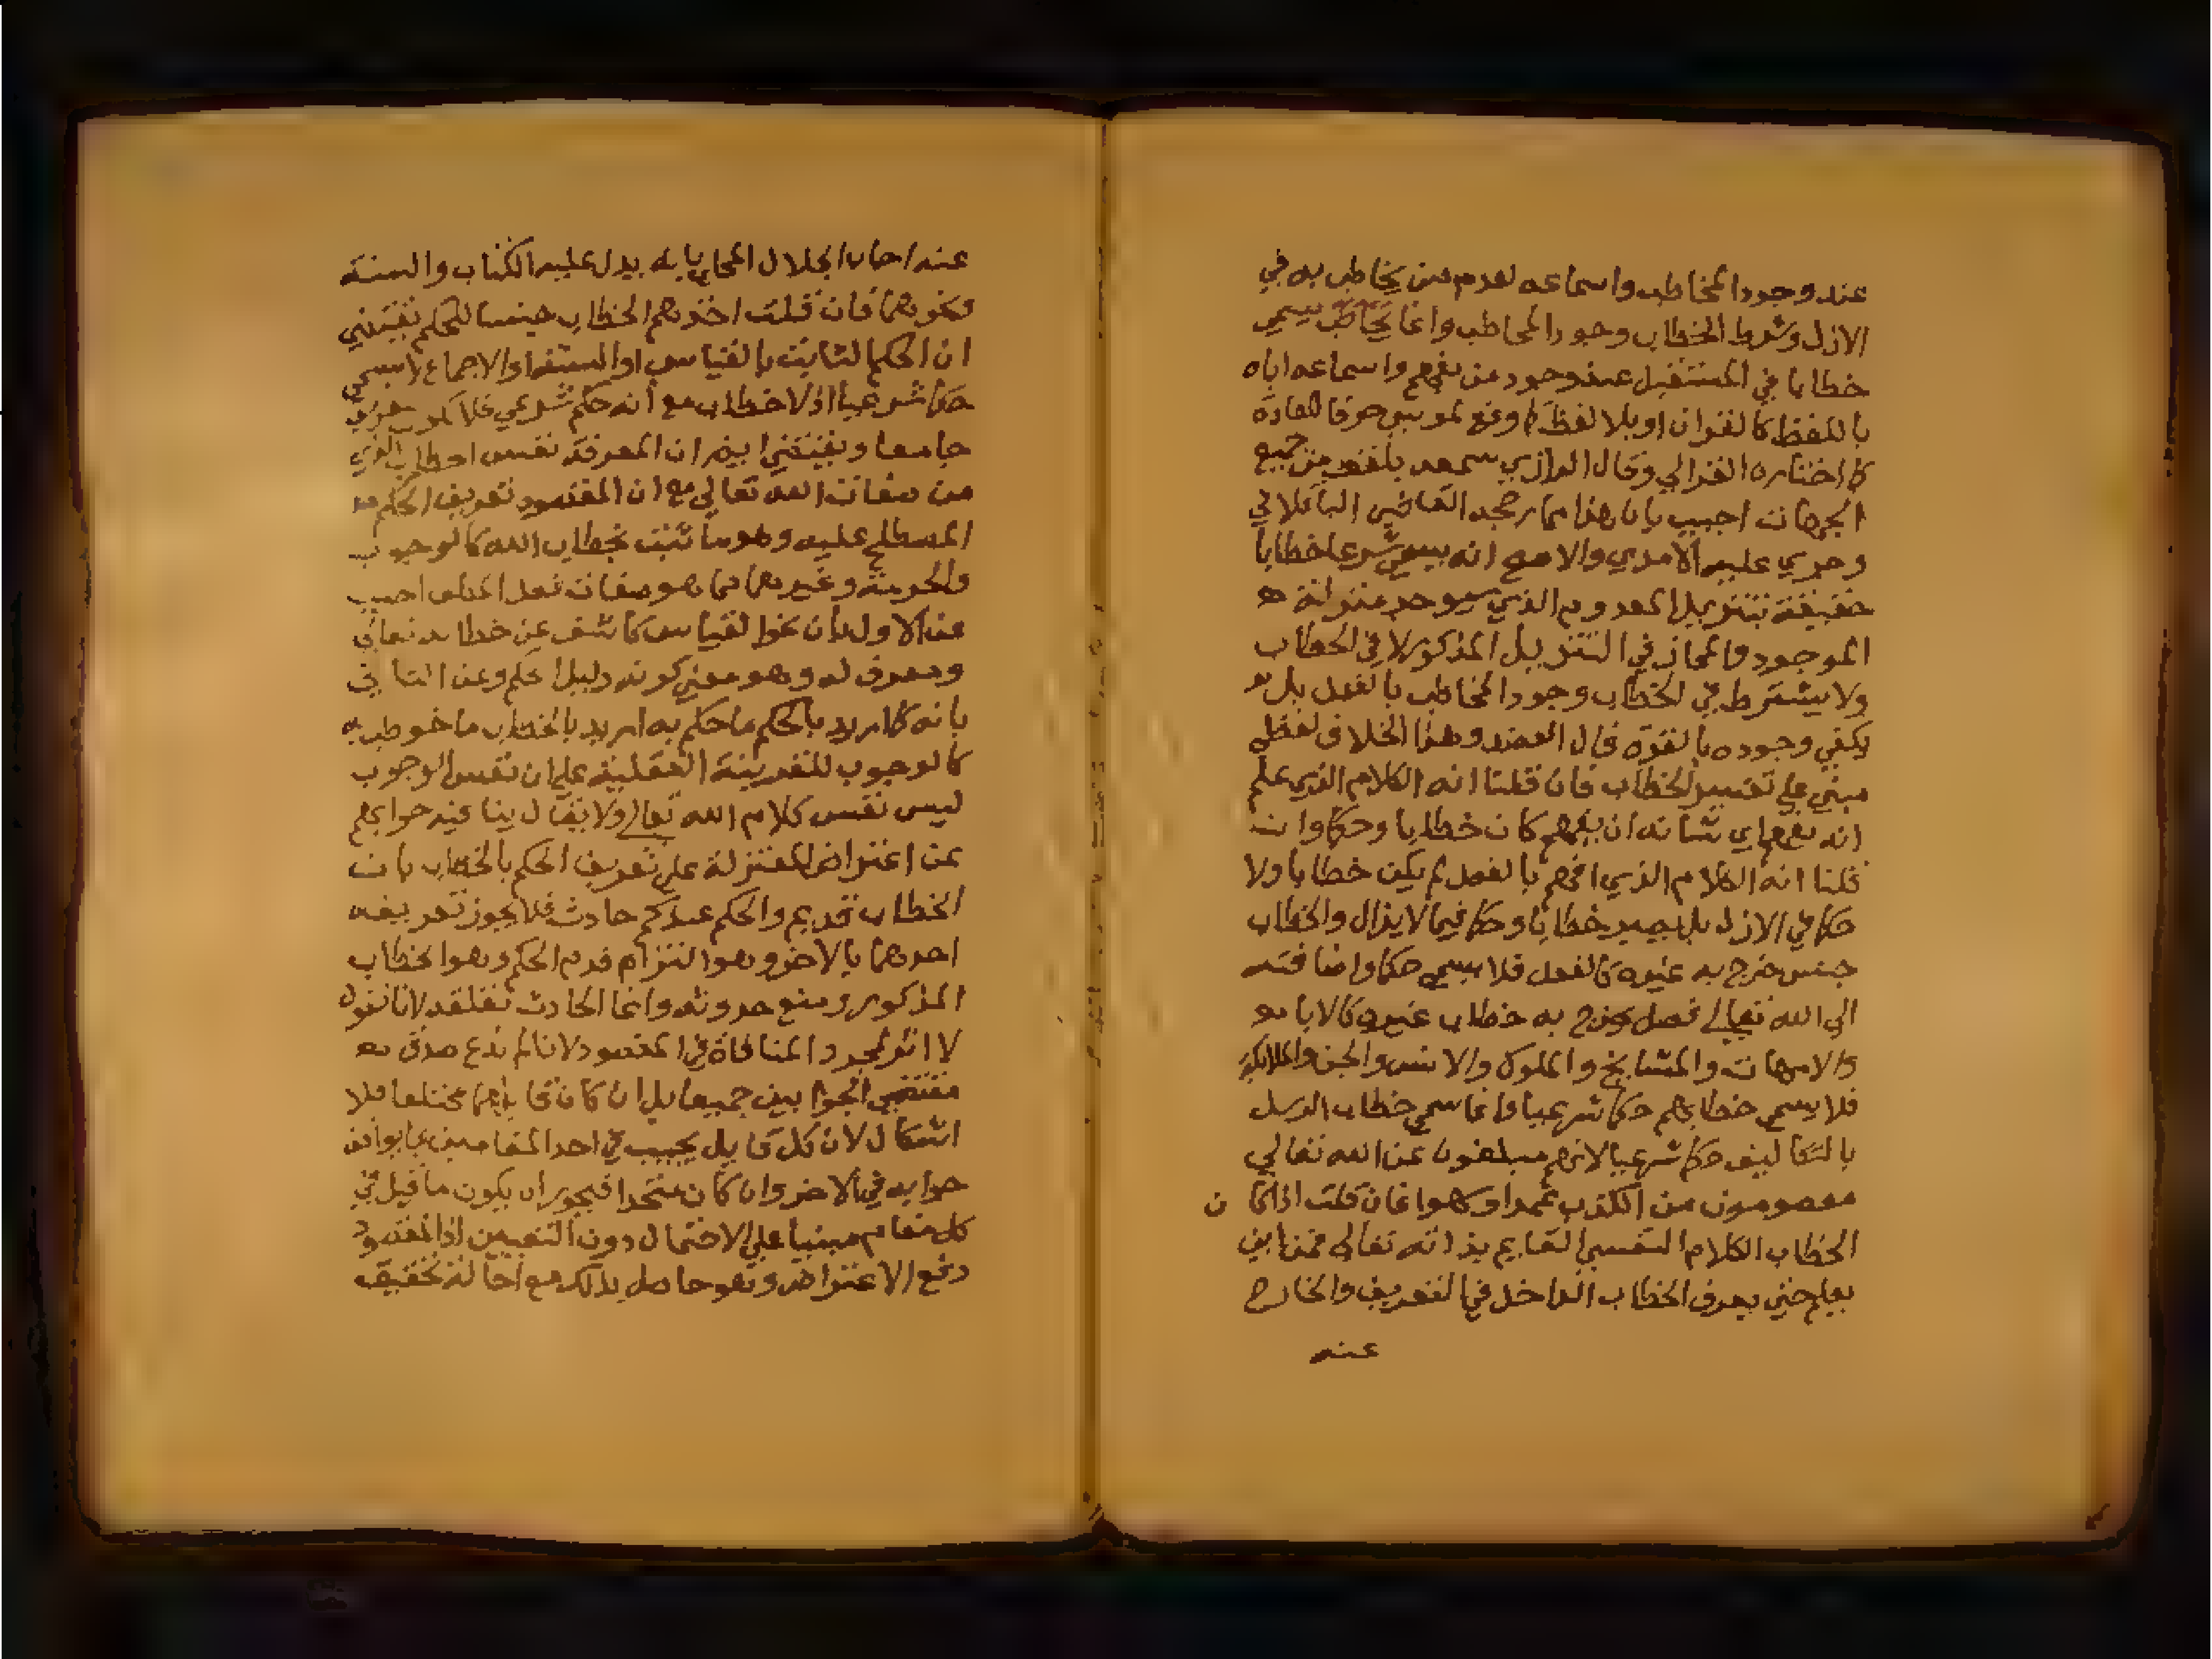 عند وجود المخاطب واسماعه لعدم من يخاطب به في
الازل وشرط الخطاب وجود المخاطب وانما يخاطب يسمي
خطابا في المستقبل عند وجود من يفهم واسماعه اياه
باللفظ كالقران او بلا لفظ كما وقع لموسي خرقا للعادة
كما اختاره الغزالي وقال الرازي سمعه بلفظ من جميع
الجهات اجيب بان هذا مما رجحه القاضي الباقلاني
وجري عليه الامدي والاصح انه يسمي شرعا خطابا
حقيقة بتنزيل المعدوم الذي سيوجد منزلة
الموجود والمجاز في التنزيل المذكور لا في الخطاب
ولا يشترط في الخطاب وجود المخاطب بالفعل بل
يكفي وجوده بالقوة قال العضد وهذا الخلاف لفظي
مبني علي تفسير الخطاب فان قلنا انه الكلام الذي علم
انه يفهم اي شانه ان يفهم كان خطابا وحكما وان
قلنا انه الكلام الذي افهم بالفعل لم يكن خطابا ولا
حكما في الازل بل يصير خطابا وحكما فيما لا يزال والخطاب
جنس خرج به غيره كالفعل فلا يسمي حكما واضافته
الي الله تعالي فصل يخرج به خطاب غيره كالابا
والامهات والمشايخ والملوك والانس والجن والملايكة
فلا يسمي خطابهم حكما شرعيا وانما سمي خطاب الرسل
بالتكاليف حكما شرعيا لانهم مبلغون عن الله تعالي
معصومون من الكذب عمدا وسهوا فان قلت اذا كا ن
الخطاب الكلام النفسي القايم بذاته تعالي فمن اين
يعلم حتي يعرف الخطاب الداخل في التعريف والخارج
عنه
عنه اجاب الجلال المحلي بانه يدل عليه الكتاب والسنة
ونحوهما فان قلت اخذهم الخطاب جنسا للحكم يقتضي
ان الحكم الثابت بالقياس او المستقرا والاجماع لا يسمي
حكما شرعيا اذ لا خطاب مع أنه حكم شرعي فلا
جامعا ويقتضي ايضا ان المعرفة نفس الخطاب الذي
من صفات الله تعالي مع ان المقصود تعريف الحكم
المصطلح عليه وهو ما ثبت بخطاب الله كالوجوب
والحرمة وغيرهما مما هو صفات فعل المكلف اجيب
عن الاول بان نحو القياس كاشف عن خطابه تعالي
ومعرف له وهو معني كونه دليل الحكم وعن الثاني
بانه كما اريد بالحكم ما حكم به اريد بالخطاب ما خوطب به
كالوجوب للقرينة العقلية علي ان نفس الوجوب
ليس نفس كلام الله تعالي ولا يقال ينافيه جوابكم
عن اعتراض المعتزلة علي تعريف الحكم بالخطاب بان
الخطاب قديم والحكم عندكم حادث فلا يجوز تعريف
احدهما بالاخر وهو التزام قدم الحكم وهو الخطاب
المذكور ومنع حدوثه وانما الحادث تعلقه لانا نقول
لا اثر لمجرد المنافاة في المقصود لانا لم ندع صدق
مقتضي الجوابين جميعا بل ان كان قايلهما مختلفا فلا
اشكال لان كل قايل يجيب في احد المقامين بما يوافق
جوابه في الاخر وان كان متحدا فيجوز ان يكون ما قيل في
كل مقام مبنيا علي الاحتمال دون التعيين اذ المقصود
دفع الاعتراض وهو حاصل بذلك مع احالة تحقيق